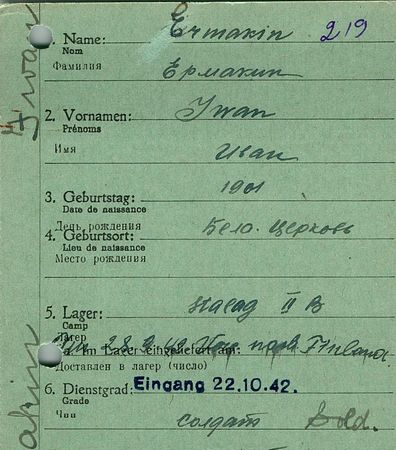 1. Name: Ermakin 219
Nom
Фамилия Ермакин
2. Vornamen: Iwan
Prénoms
Имя Иван
3. Geburtstag: 1901
Date de naissance
День рождения
4. Geburtsort: Бело. Церковь
Lieu de naissance
Место рождения
5. Lager: II B
Camp
Лагер
im Lager eingeliefert am:
Доставлен в лагер (число)
Eingang 22.10.42.
6. Dienstgrad:
Grade
Чин солдат Sold.
Iwan